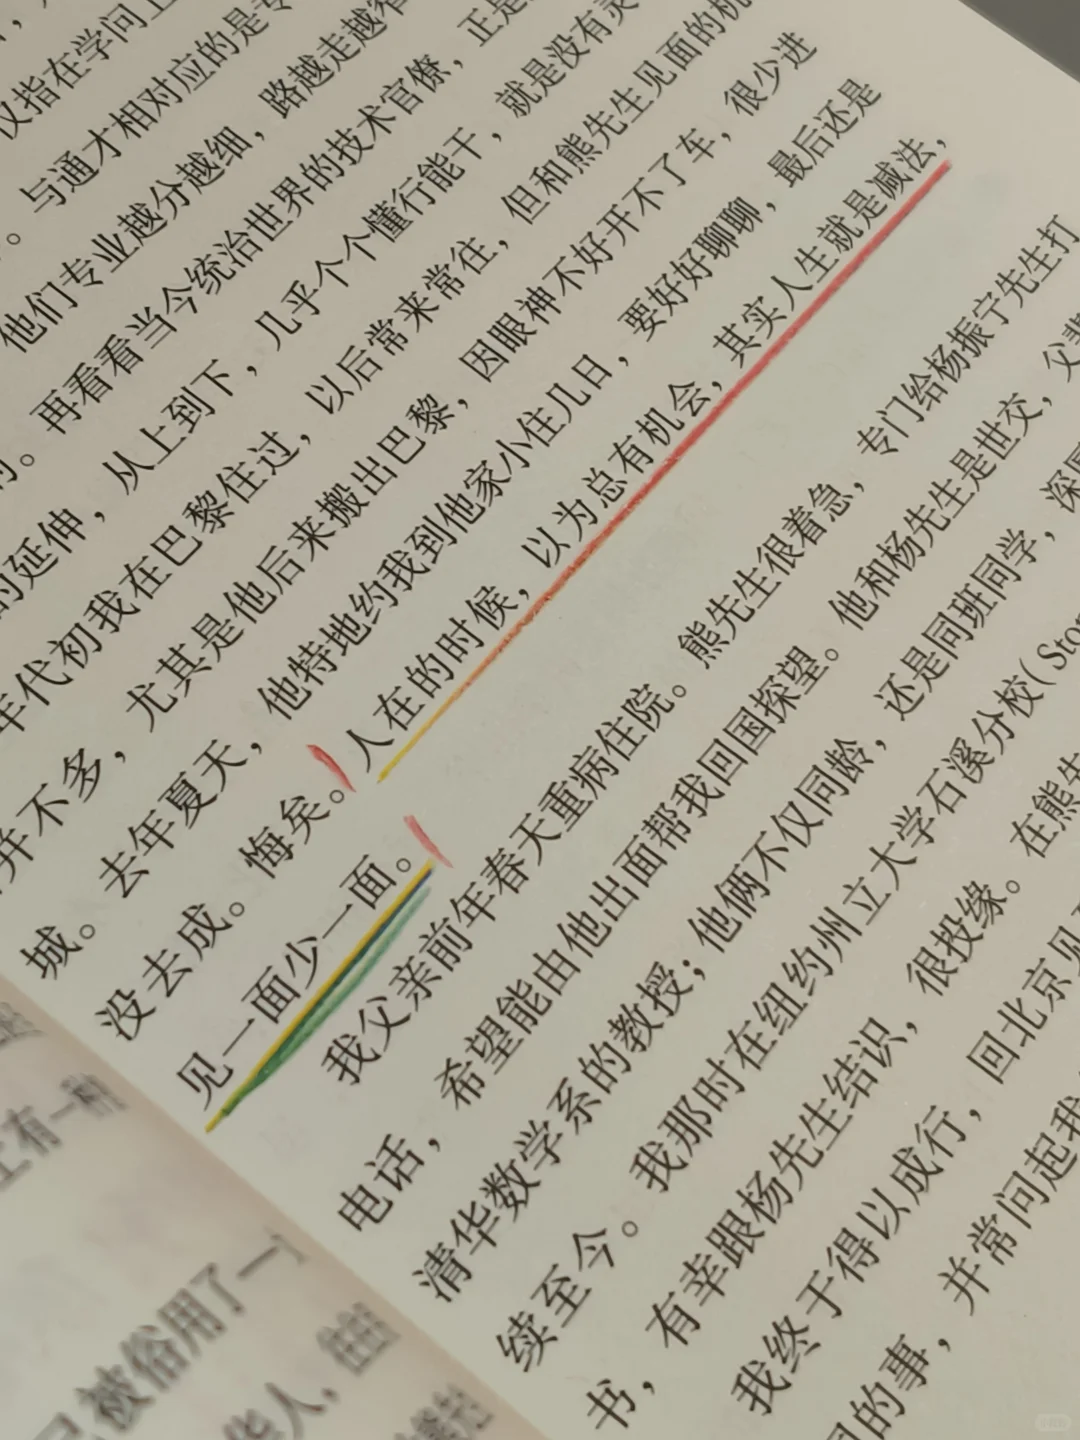 仅指在学问上
与通才相对应的是专
他们专业越分越细，路越走越窄
的。再看看当今统治世界的技术官僚，正是
的延伸，从上到下，几乎个个懂行能干，就是没有灵
年代初我在巴黎住过，以后常来常往，但和熊先生见面的机
并不多，尤其是他后来搬出巴黎，因眼神不好开不了车，很少进
城。去年夏天，他特地约我到他家小住几日，要好好聊聊，最后还是
没去成。悔矣。人在的时候，以为总有机会，其实人生就是减法，
见一面少一面。
我父亲前年春天重病住院。熊先生很着急，专门给杨振宁先生打
电话，希望能由他出面帮我回国探望。他和杨先生是世交，父辈
清华数学系的教授；他俩不仅同龄，还是同班同学，深
续至今。我那时在纽约州立大学石溪分校(Ston
书，有幸跟杨先生结识，很投缘。在熊先
我终于得以成行，回北京见
的事，并常问起我
有一种
被俗用了一
华人，